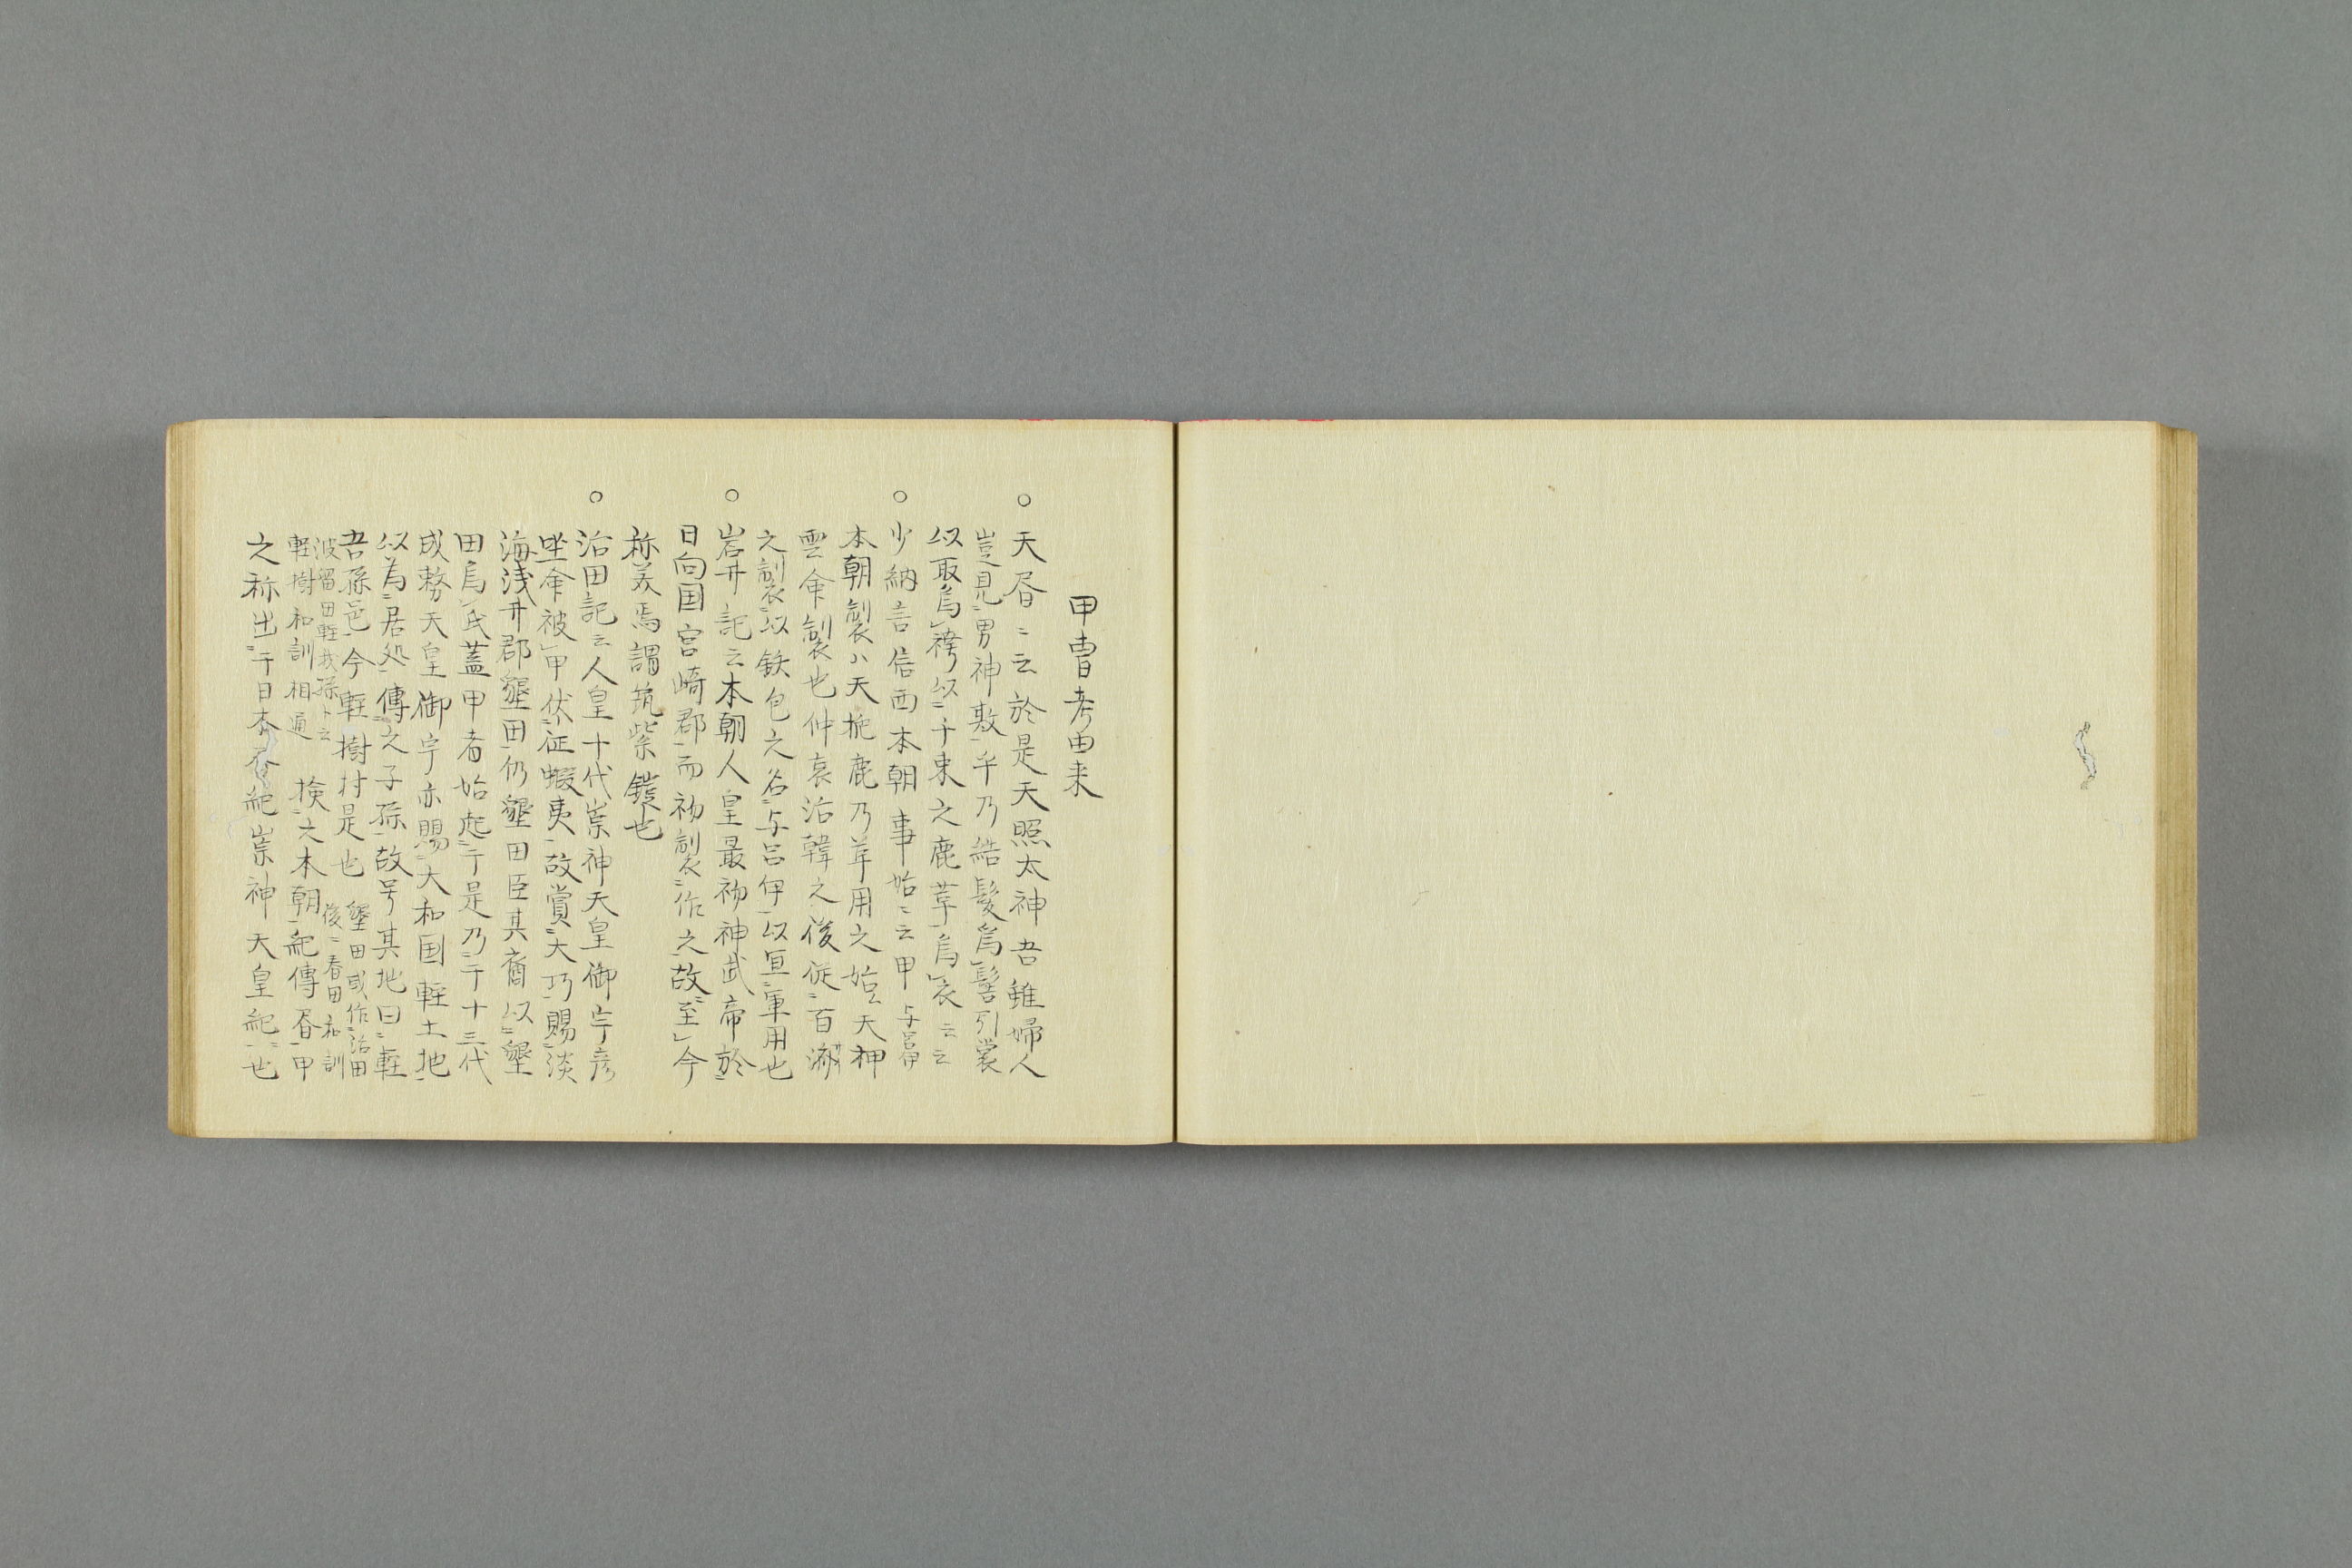 甲冑考由来
○天昏ニ云於是天照太神吾雖婦人
豈見男神敷乎乃結髪為髻引裳
以取為袴以千束之鹿革為衣云云
○少納言信西本朝事始ニ云甲
本朝製ハ天拖鹿乃革用之始天神
雲命製也仲哀治韓之後従百濟
之製以鉄包之名与呂伊以亘軍用也
○岩井記云本朝人皇最初神武帝於
日向国宮崎郡而初製作之故至今
称美焉謂筑紫鎧也
○治田記云人皇十代崇神天皇御宇彦
坐命被甲伏征蝦夷故賞大乃賜淡
海浅井郡墾田仍墾田臣其裔以墾
田為氏蓋甲者始起于是乃于十三代
成務天皇御宇亦賜大和国軽土地
以為居処傳之子孫故号其地曰軽
吾孫邑今軽樹村是也 墾田或作治田
後ニ春田和訓
波留田軽我孫ト云
軽樹和訓相通 検之本朝紀傳昏甲
之称出于日本昏紀崇神天皇紀也